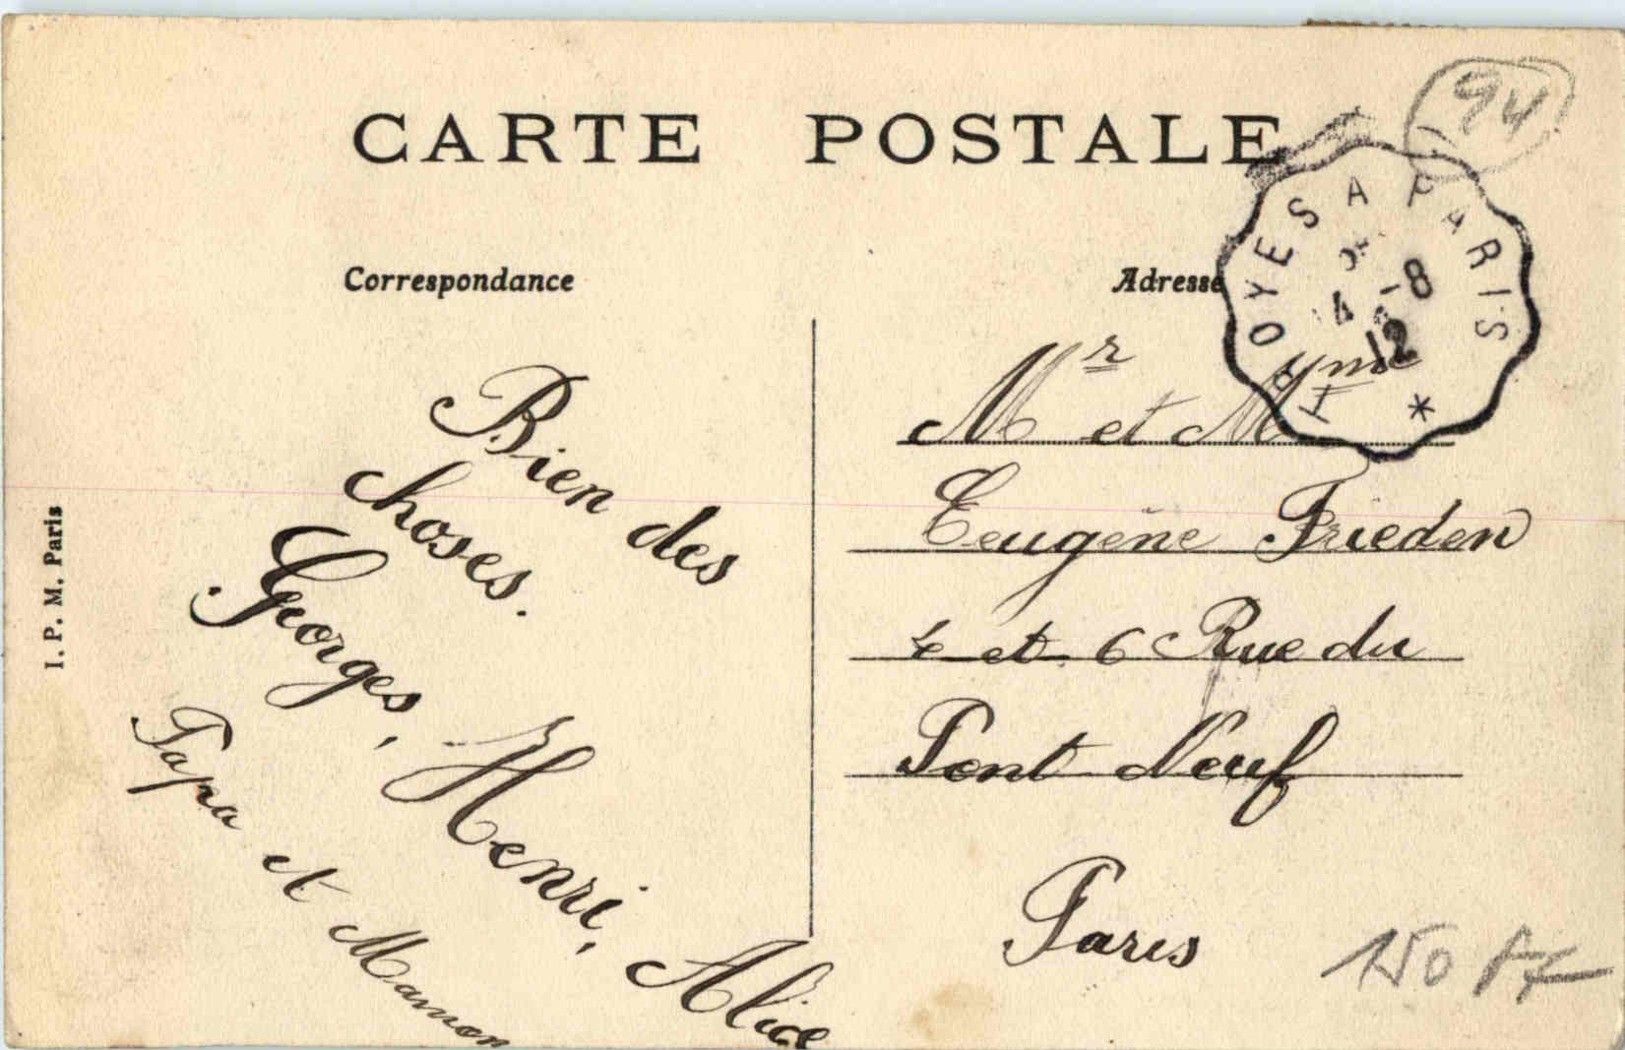 CARTE POSTALE
94
TROYES A PARIS
4 -8
12
*
Correspondance
Adresse
Bien des
choses.
Georges, Henri, Alice
Papa et Maman
Mr et Mme
Eeugène Frieden
4 et 6 Rue du
Pont Neuf
Paris
I. P. M. Paris